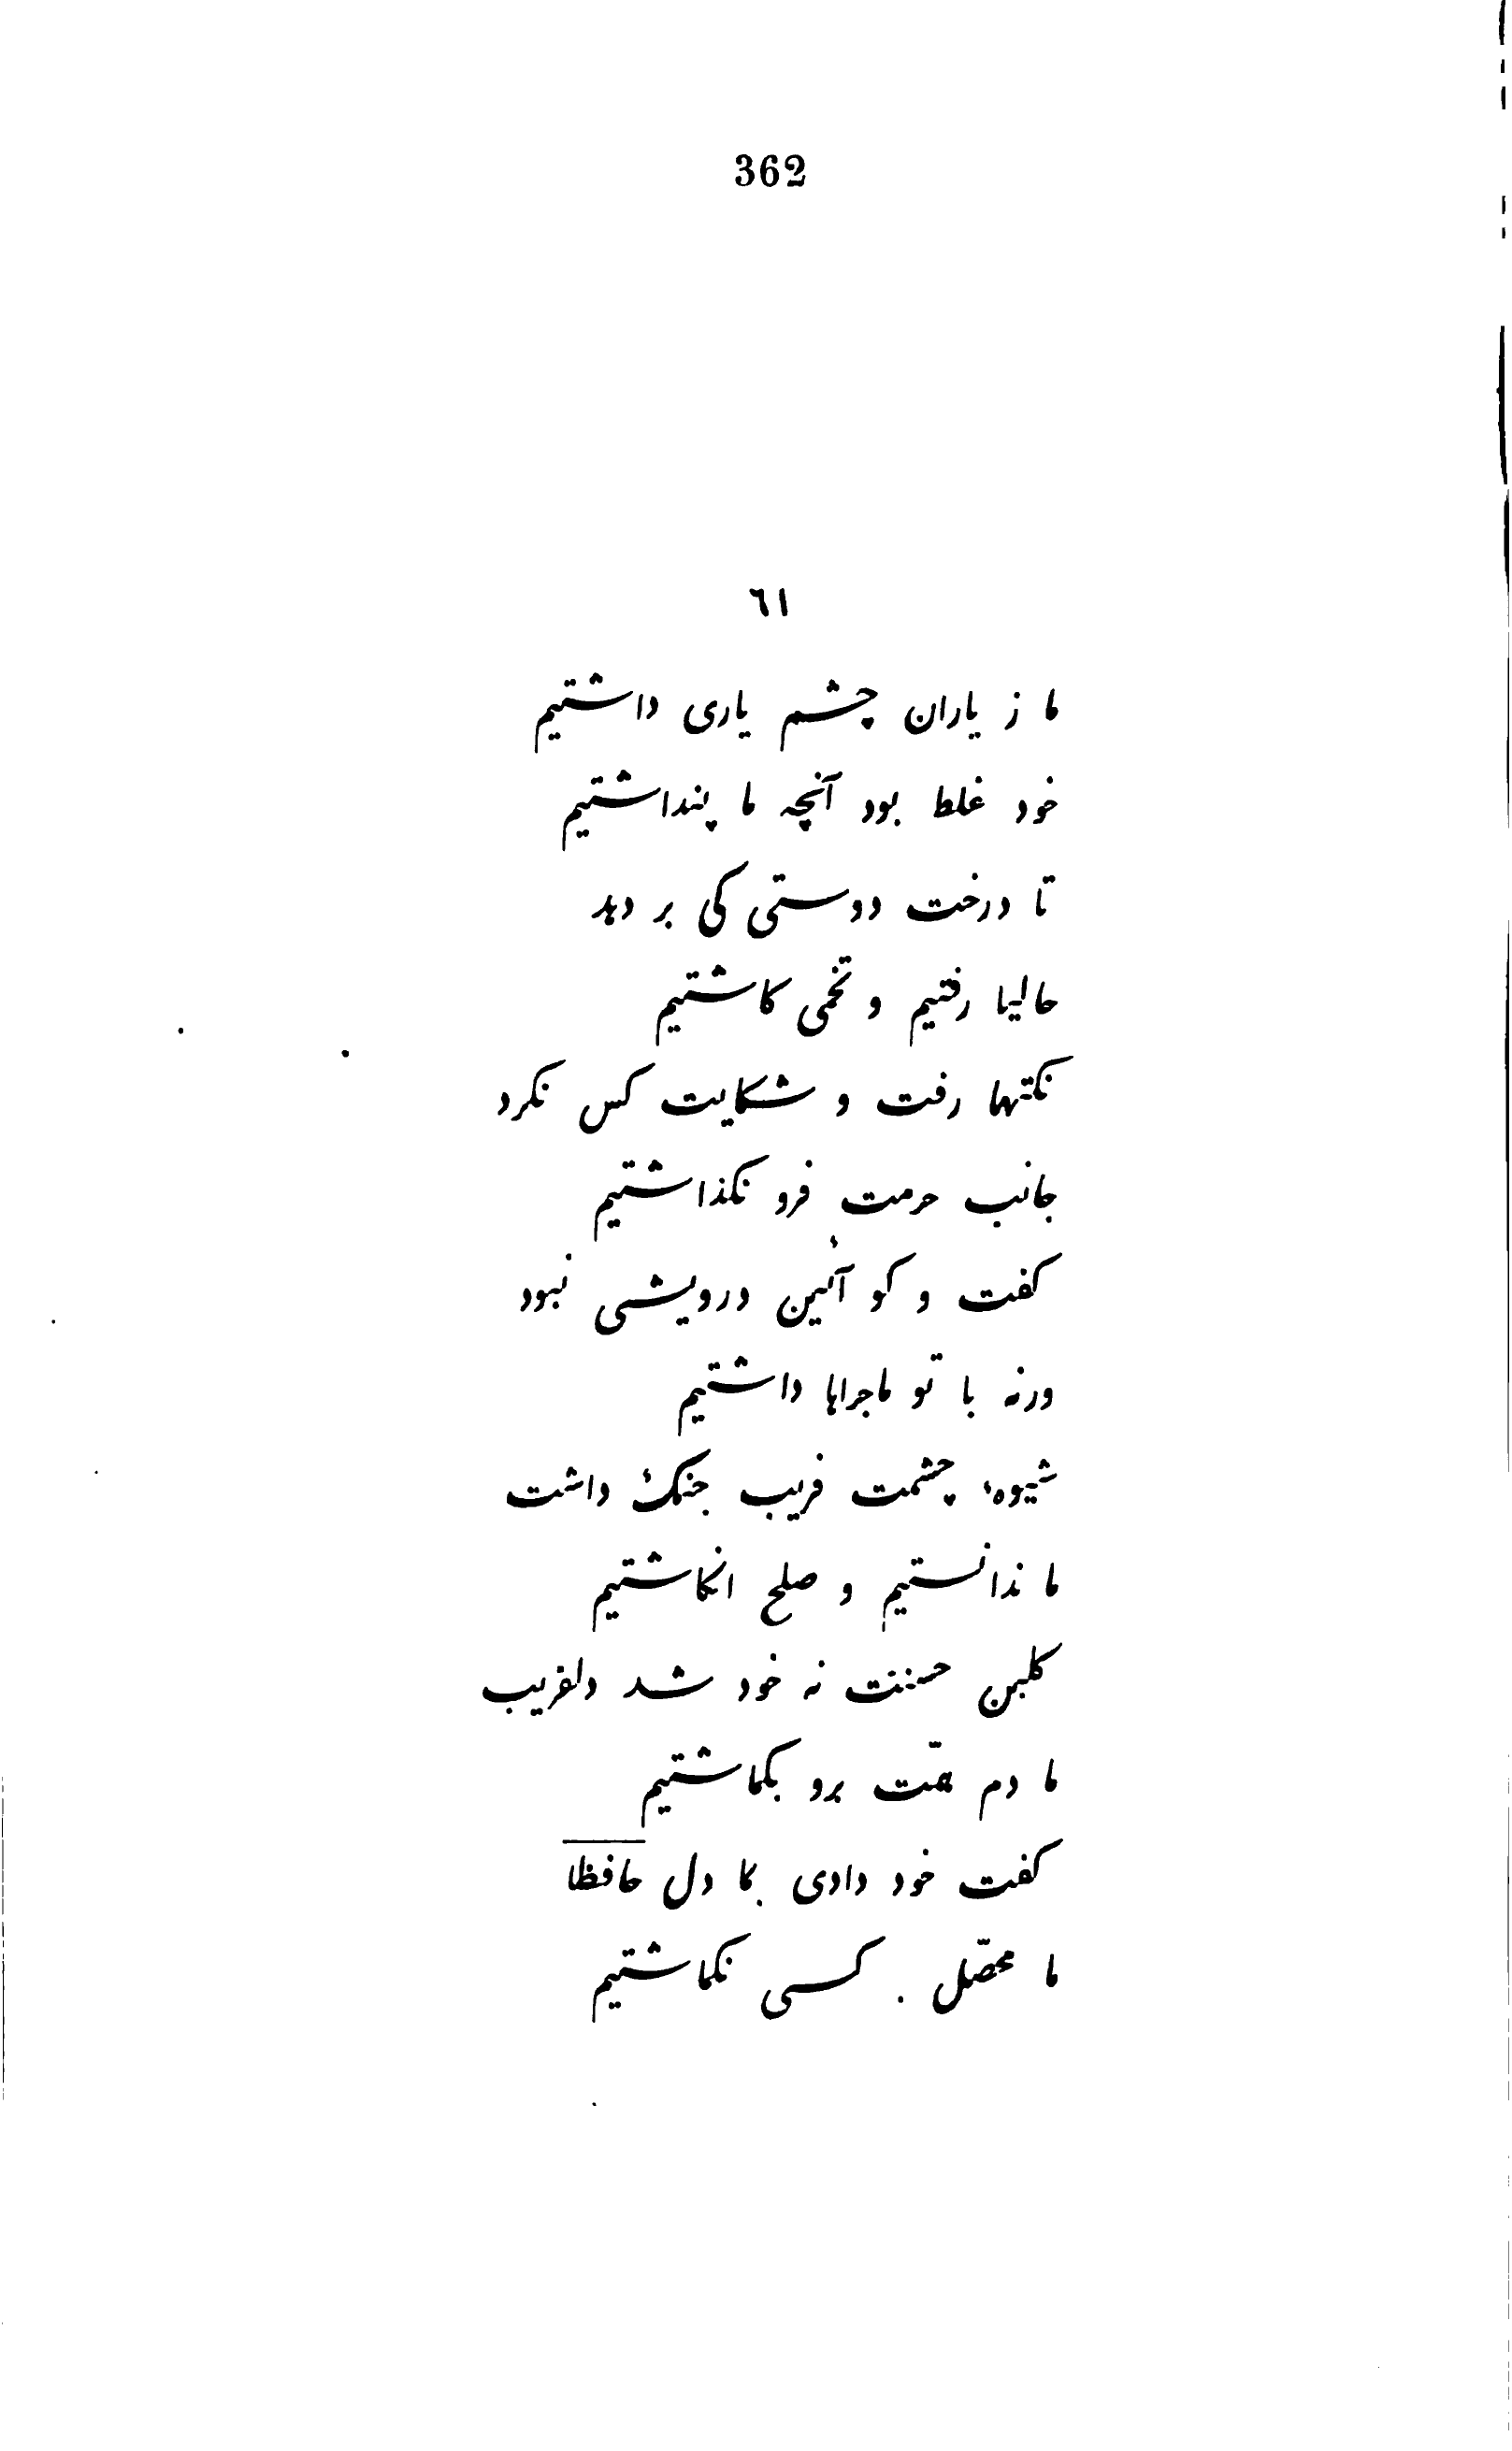 362
٦١
ما ز یاران چشم یاری داشتیم
خود غلط بود آنچه ما پنداشتیم
تا درخت دوستی کی بر دهد
حالیا رفتیم و تخمی کاشتیم
نکتها رفت و شکایت کس نکرد
جانب حرمت فرو نکذاشتیم
کفت و کو آئین درویشی نبود
ورنه با تو ماجراها داشتیم
شیوهٔ چشمت فریب جنک داشت
ما ندانستیم و صلح انکاشتیم
کلبن حسنت نه خود شد دلفریب
ما دم همّت برو بکماشتیم
کفت خود دادی بما دل حافظا
ما محصّل بر کسی نکماشتیم